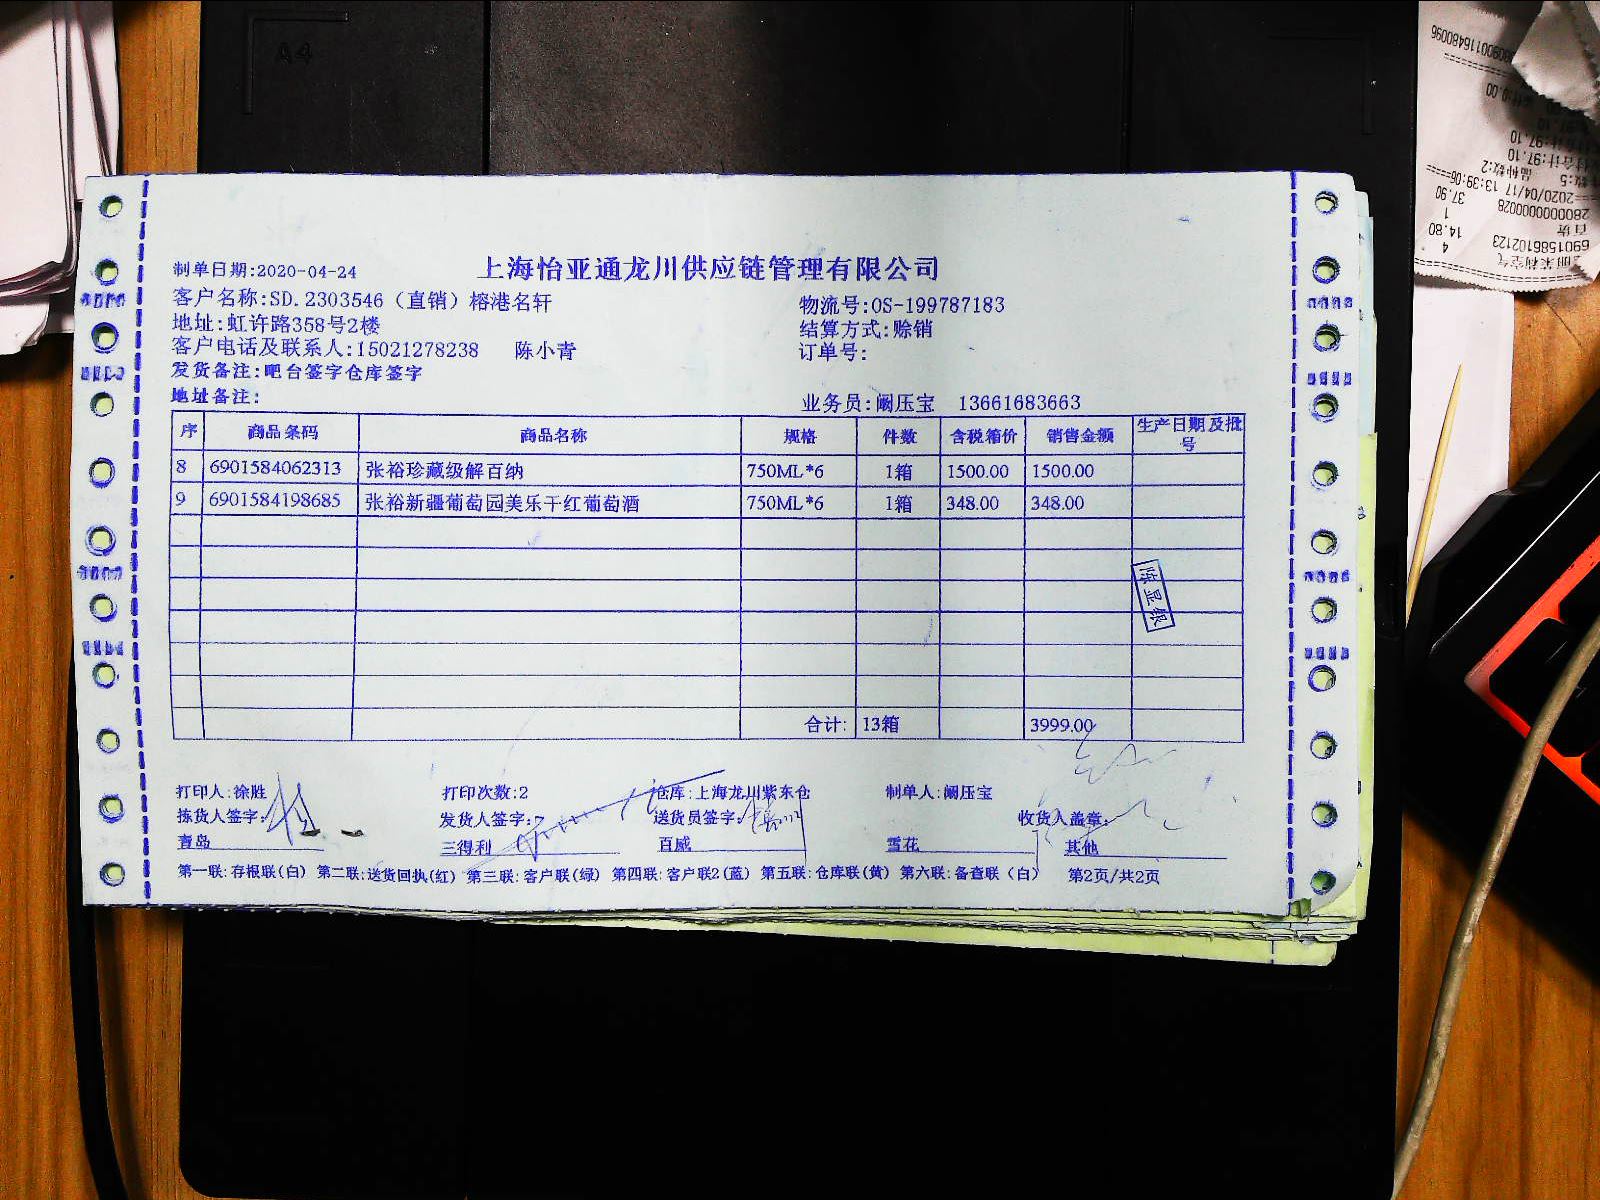 A4
制单日期:2020-04-24
上海怡亚通龙川供应链管理有限公司
客户名称:SD.2303546（直销）榕港名轩
物流号:OS-199787183
地址:虹许路358号2楼
结算方式:赊销
客户电话及联系人:15021278238 陈小青
订单号:
发货备注:吧台签字仓库签字
地址备注:
业务员:阚压宝 13661683663
序 商品条码 商品名称 规格 件数 含税箱价 销售金额 生产日期及批号
8 6901584062313 张裕珍藏级解百纳 750ML*6 1箱 1500.00 1500.00
9 6901584198685 张裕新疆葡萄园美乐干红葡萄酒 750ML*6 1箱 348.00 348.00
合计: 13箱 3999.00
打印人:徐胜 打印次数:2 仓库:上海龙川紫东仓 制单人:阚压宝
拣货人签字: 发货人签字: 送货员签字: 收货人盖章:
青岛 三得利 百威 雪花 其他
第一联:存根联(白) 第二联:送货回执(红) 第三联:客户联(绿) 第四联:客户联2(蓝) 第五联:仓库联(黄) 第六联:备查联(白) 第2页/共2页
合计:97.10
数:5 品种数:2
2020/04/17 13:39:06
37.90
2800000000028
百货
1
14.80
6901586102123
4